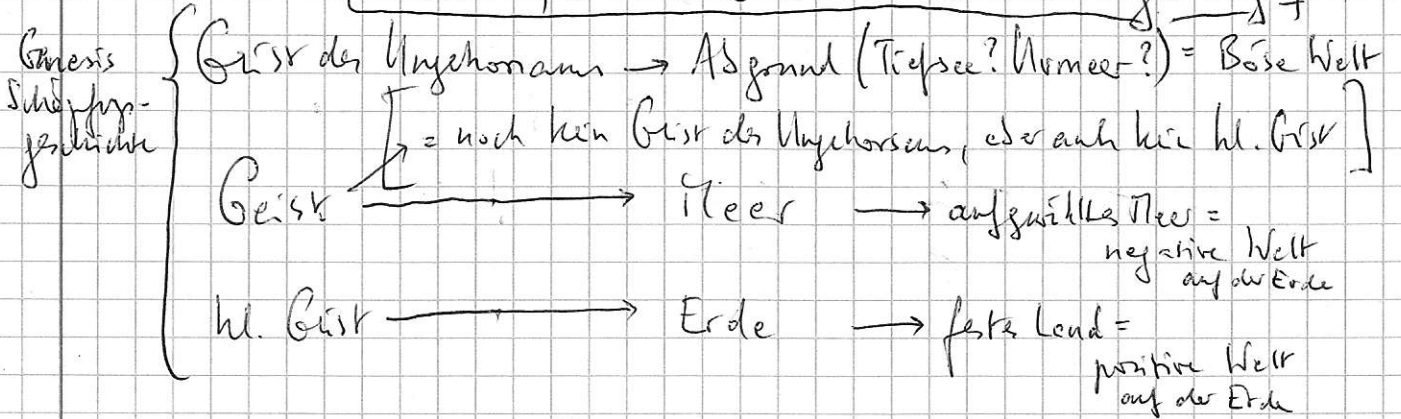 Genesis Schöpfungs-geschichte
Geist des Ungehorsams → Abgrund (Tiefsee? Urmeer?) = Böse Welt
[= noch kein Geist des Ungehorsams, aber auch kein hl. Geist]
Geist → Meer → aufgewühltes Meer =
negative Welt
auf der Erde
hl. Geist → Erde → festes Land =
positive Welt
auf der Erde